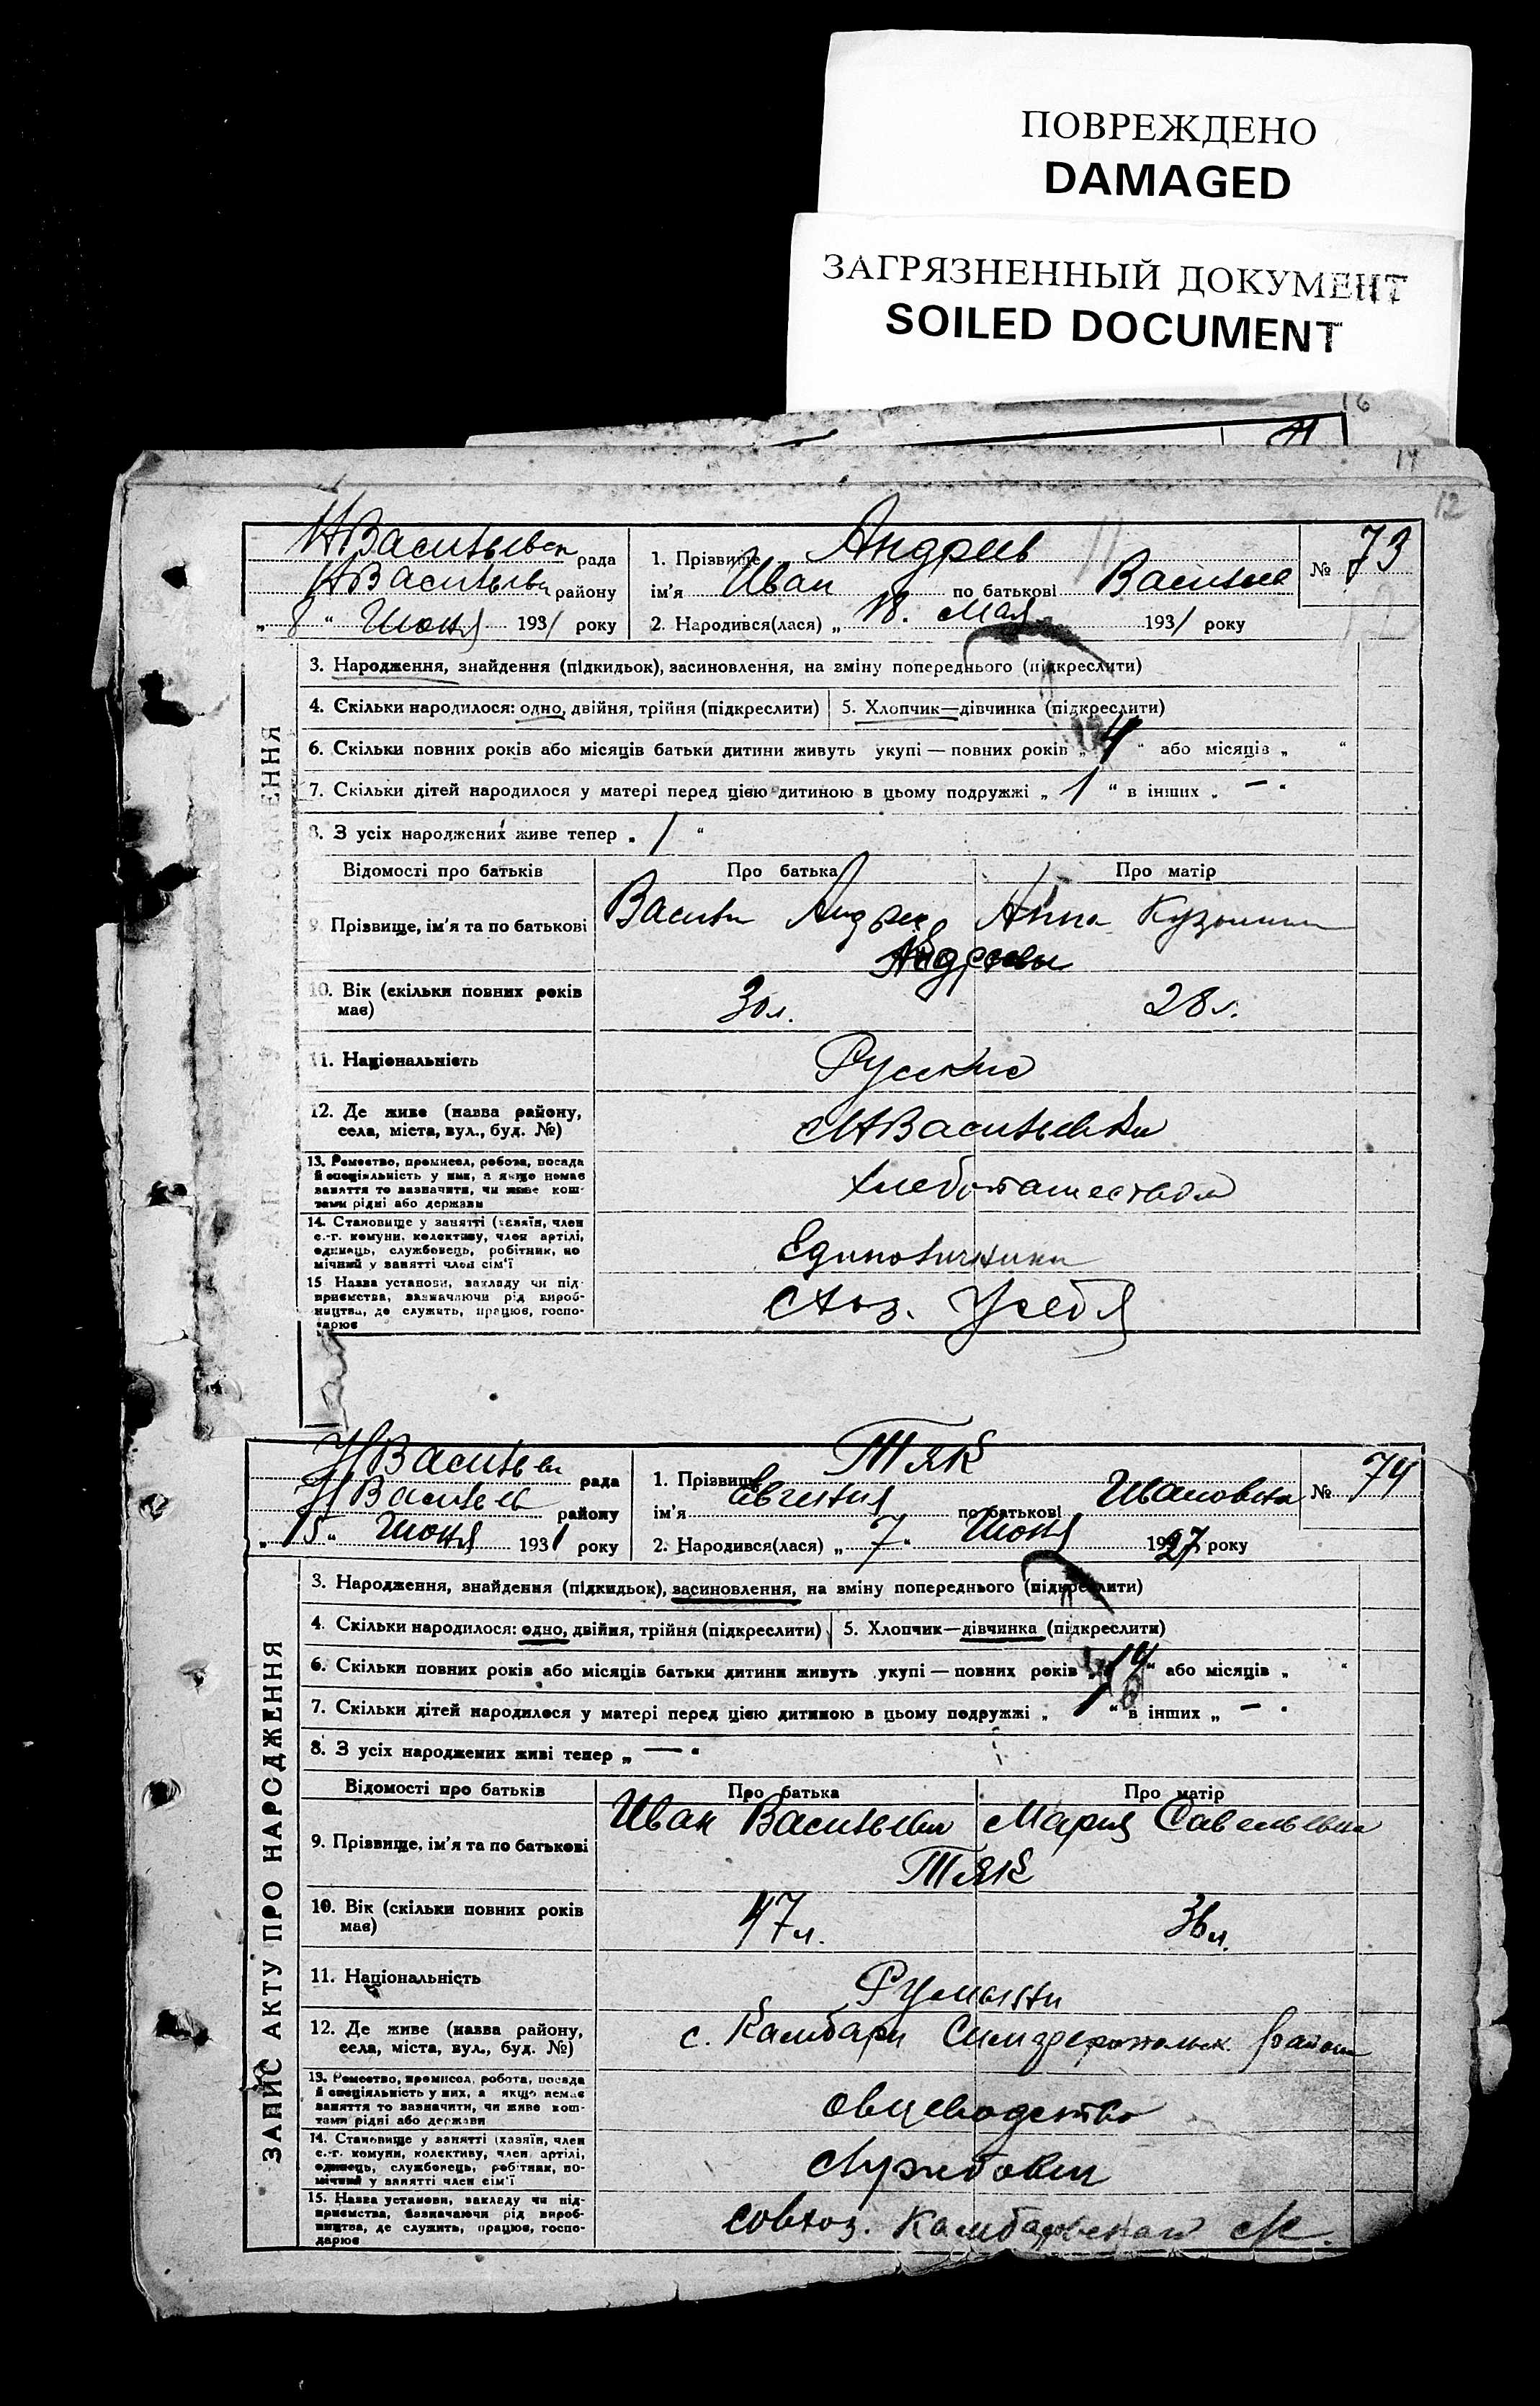 ПОВРЕЖДЕНО
DAMAGED
ЗАГРЯЗНЕННЫЙ ДОКУМЕНТ
SOILED DOCUMENT
16
17
12
рада
району
„ 8 “ Июня 1931 року
1. Прізвище Андреев
ім'я Иван по батькові
2. Народився(лася) „ 18. Мая 1931 року
№ 73
3. Народження, знайдення (підкидьок), засиновлення, на зміну попереднього (підкреслити)
4. Скільки народилося: одно, двійня, трійня (підкреслити)
5. Хлопчик—дівчинка (підкреслити)
6. Скільки повних років або місяців батьки дитини живуть укупі — повних років „ 4 “ або місяців „ “
7. Скільки дітей народилося у матері перед цією дитиною в цьому подружжі „ 1 “ в інших „ — “
8. З усіх народжених живе тепер „ 1 “
Відомості про батьків
Про батька
Про матір
9. Прізвище, ім'я та по батькові
Анна
10. Вік (скільки повних років
має)
30 л.
28 л.
11. Національність
Русские
12. Де живе (назва району,
села, міста, вул., буд. №)
13. Ремество, промисел, робота, посада
й спеціяльність у них, а якщо немає
заняття то визначити, чи живе кош-
тами рідні або держави
14. Становище у занятті (хазяїн, член
с.-г. комуни, колективу, член артілі,
одинець, службовець, робітник, по
мічний у занятті член сім'ї
Единоличники
15 Назва установи, закладу чи під-
приємства, зазначаючи рід вироб-
ництва, де служить, працює, госпо-
дарює
ЗАПИС АКТУ ПРО НАРОДЖЕННЯ
рада
району
„ 15 “ Июня 1931 року
1. Прізвище Тяк
ім'я Евгения по батькові Ивановна
2. Народився(лася) „ 7 “ Июня 1927 року
№ 74
3. Народження, знайдення (підкидьок), засиновлення, на зміну попереднього (підкреслити)
4. Скільки народилося: одно, двійня, трійня (підкреслити)
5. Хлопчик—дівчинка (підкреслити)
6. Скільки повних років або місяців батьки дитини живуть укупі — повних років „ 14 “ або місяців „ “
7. Скільки дітей народилося у матері перед цією дитиною в цьому подружжі „ “ в інших „ — “
8. З усіх народжених живі тепер „ — “
Відомості про батьків
Про батька
Про матір
9. Прізвище, ім'я та по батькові
Иван Васильевич
Мария Савельевна
Тяк
10. Вік (скільки повних років
має)
47 л.
36 л.
11. Національність
12. Де живе (назва району,
села, міста, вул., буд. №)
с. Камбары
13. Ремество, промисел, робота, посада
й спеціяльність у них, а якщо немає
заняття то зазначити, чи живе кош-
тами рідні або держави
овцеводство
14. Становище у занятті (хазяїн, член
с.-г. комуни, колективу, член артілі,
одинець, службовець, робітник, по-
мічний у занятті член сім'ї
15. Назва установи, закладу чи під-
приємства, зазначаючи рід вироб-
ництва, де служить, працює, госпо-
дарює
совхоз.